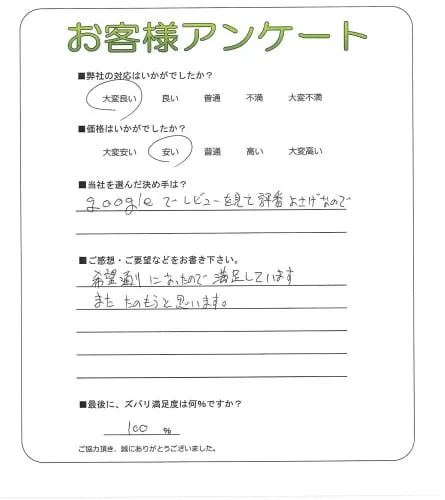 お客様アンケート
■弊社の対応はいかがでしたか？
大変良い 良い 普通 不満 大変不満
■価格はいかがでしたか？
大変安い 安い 普通 高い 大変高い
■当社を選んだ決め手は？
googleでレビューを見て評番よさげなので
■ご感想・ご要望などをお書き下さい。
希望通りになったので満足しています
また たのもうと思います。
■最後に、ズバリ満足度は何％ですか？
100 %
ご協力頂き、誠にありがとうございました。